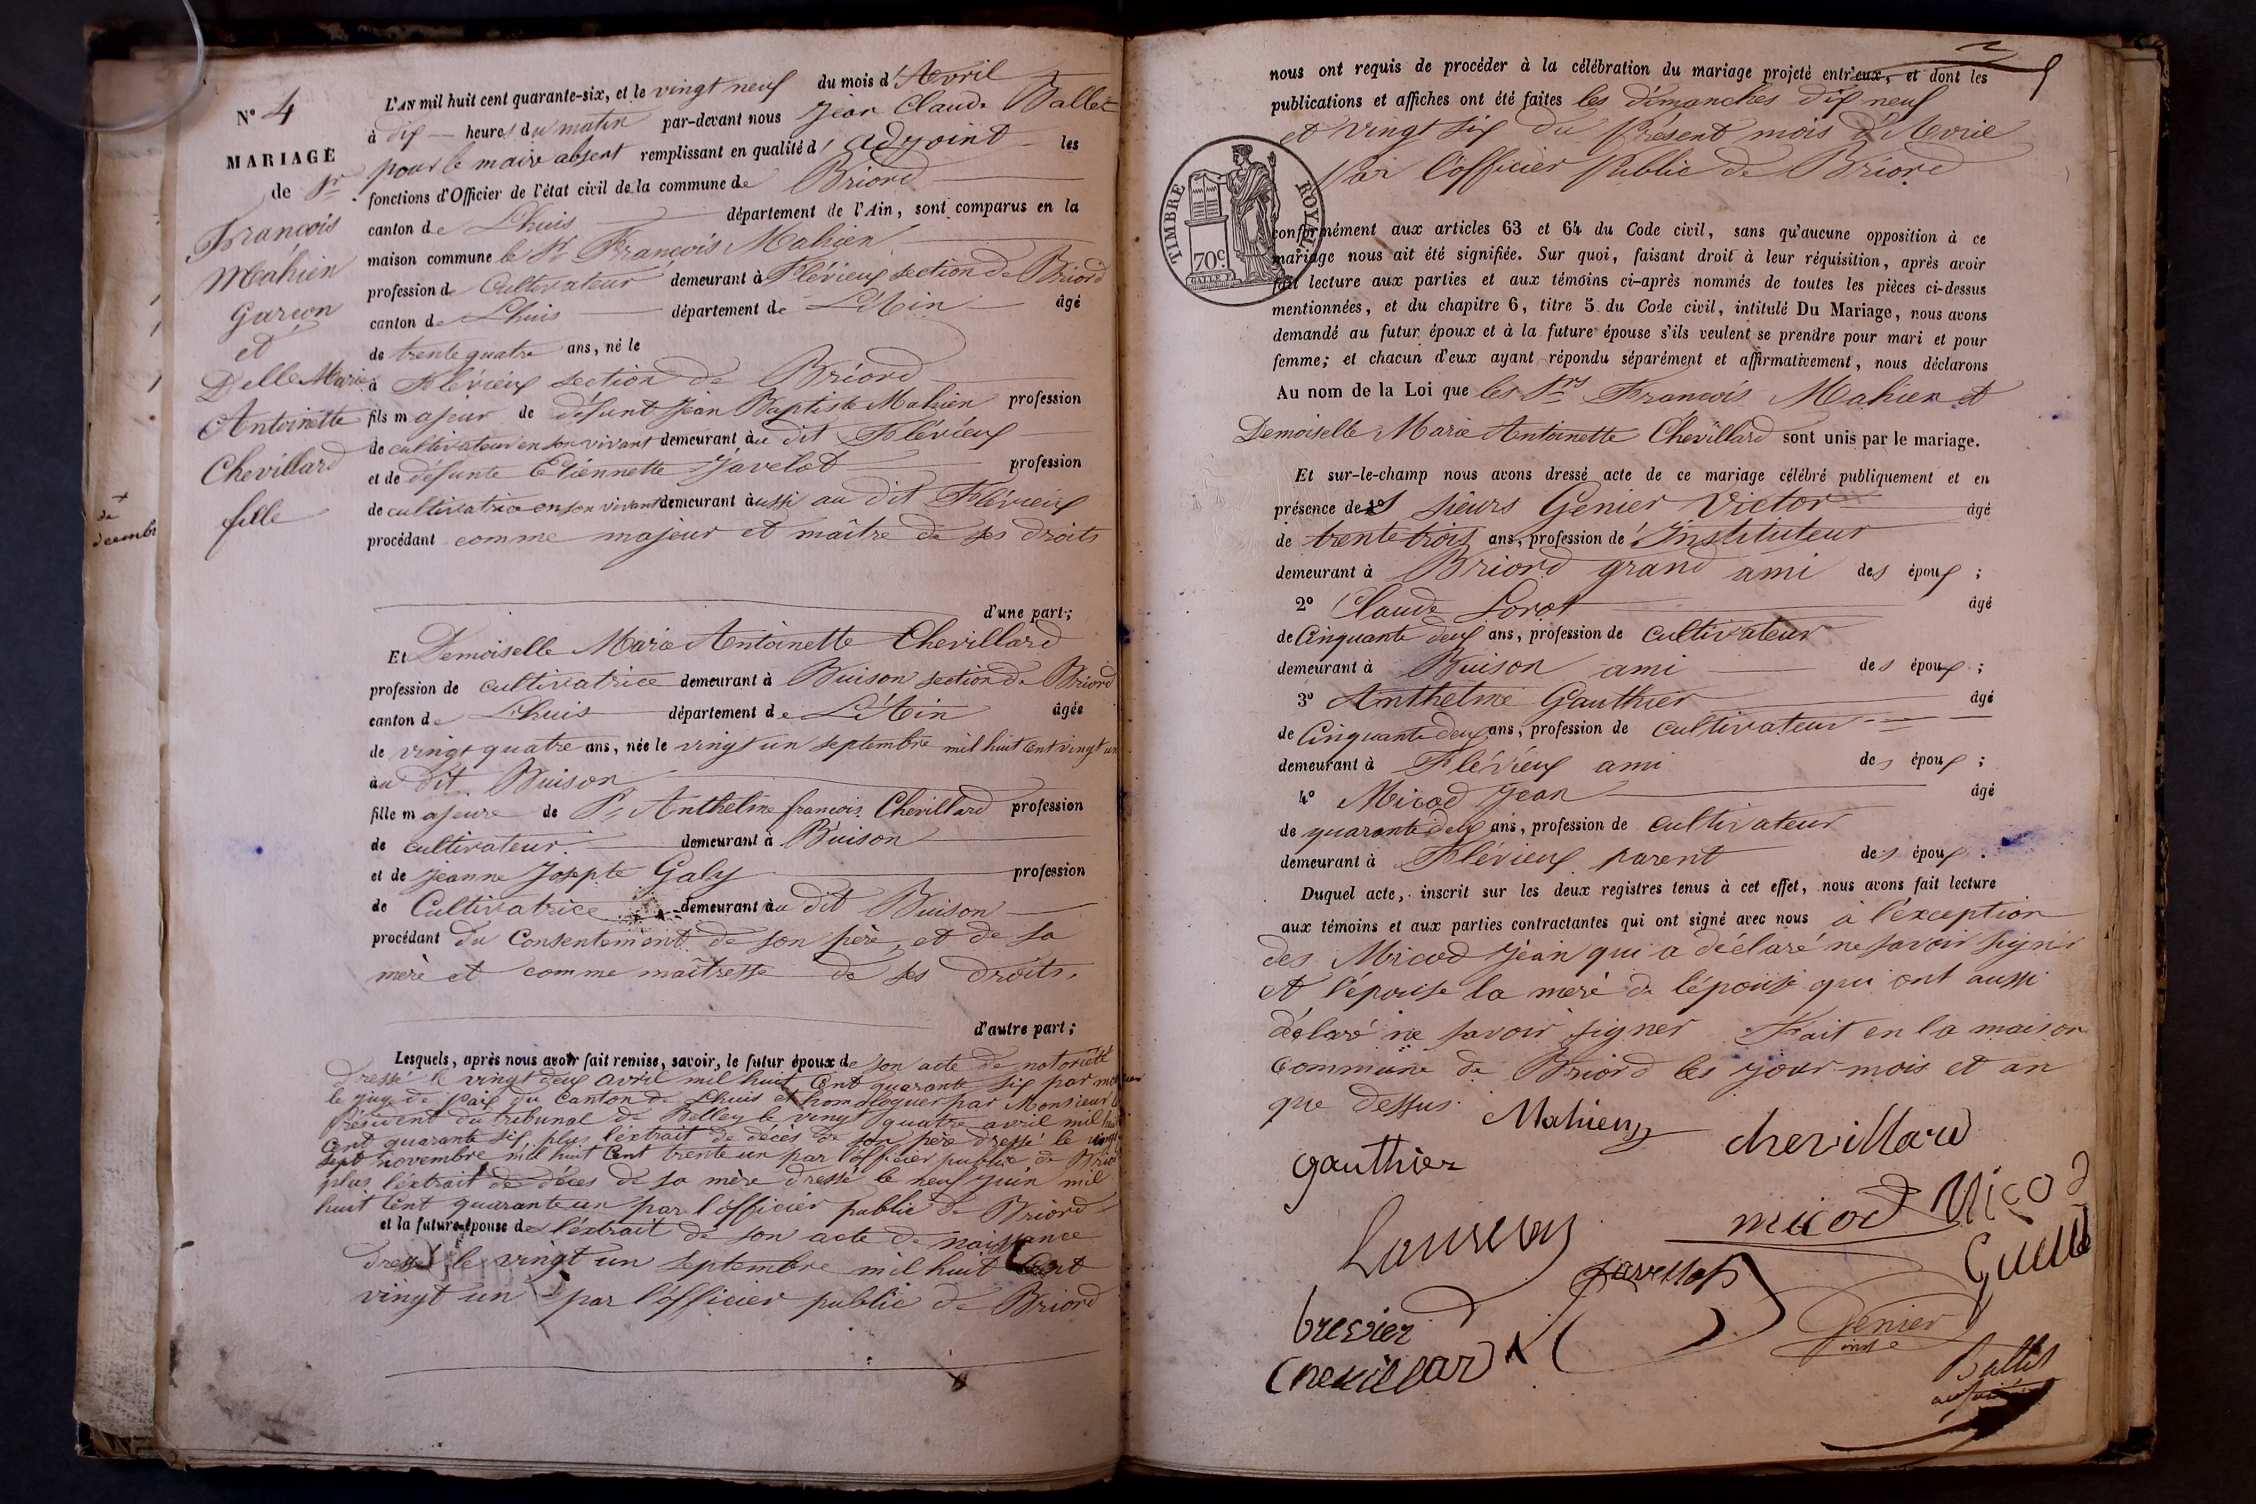 N° 4
MARIAGE
de Sr
François
Mahien
Garcon
et
Delle Marie
Antoinette
Chevillard
fille
+
de
decembr
L'AN mil huit cent quarante-six, et le vingt neuf du mois d'Avril
à dix heures du matin par-devant nous Jean Claude Ballet
pour le maire absent remplissant en qualité d'adjoint les
fonctions d'Officier de l'état civil de la commune de Briord
canton de Lhuis département de l'Ain, sont comparus en la
maison commune le Sr François Mahien
profession de Cultivateur demeurant à Flévieux section de Briord
canton de Lhuis département de L'Ain âgé
de trente quatre ans, né le
à Flévieux section de Briord
fils majeur de défunt Jean Baptiste Mahien profession
de cultivateur en son vivant demeurant àu dit Flévieux
et de défunte Etiennette Javelot profession
de cultivatrice en son vivant demeurant àussi au dit Flévieux
procédant comme majeur et maître de ses droits
d'une part;
Et Demoiselle Marie Antoinette Chevillard
profession de cultivatrice demeurant à Buison section de Briord
canton de Lhuis département de L'Ain âgée
de vingt quatre ans, née le vingt un septembre mil huit cent vingt un
àu dit Buison
fille majeure de Sr Anthelme françois Chevillard profession
de cultivateur demeurant à Buison
et de Jeanne Josepte Galy profession
de Cultivatrice demeurant àu dit Buison
procédant du Consentement de son père, et de sa
mère et comme maîtresse de ses droits.
d'autre part;
Lesquels, après nous avoir fait remise, savoir, le futur époux de son acte de notoriété
dressé le vingt deux avril mil huit Cent quarante six par monsieur
le juge de paix du Canton de Lhuis et homologuer par Monsieur le
Président du tribunal de Belley le vingt quatre avril mil huit
Cent quarante six, plus l'extrait de décès de son père dressé le vingt
sept novembre mil huit Cent trente un par l'officier public de Briord
plus l'extrait de décès de sa mère dressé le neuf juin mil
huit Cent quarante un par l'officier public de Briord
et la future épouse de l'éxtrait de son acte de naissance
dressé le vingt un septembre mil huit Cent
vingt un par l'officier public de Briord
nous ont requis de procéder à la célébration du mariage projeté entr'eux, et dont les
publications et affiches ont été faites les dimanches dix neuf
et vingt six du Présent mois d'Avril
Par l'officier Public de Briord
TIMBRE ROYAL
70c.
conformément aux articles 63 et 64 du Code civil, sans qu'aucune opposition à ce
mariage nous ait été signifiée. Sur quoi, faisant droit à leur réquisition, après avoir
fait lecture aux parties et aux témoins ci-après nommés de toutes les pièces ci-dessus
mentionnées, et du chapitre 6, titre 5 du Code civil, intitulé Du Mariage, nous avons
demandé au futur époux et à la future épouse s'ils veulent se prendre pour mari et pour
femme; et chacun d'eux ayant répondu séparément et affirmativement, nous déclarons
Au nom de la Loi que les Srs François Mahien et
Demoiselle Marie Antoinette Chevillard sont unis par le mariage.
Et sur-le-champ nous avons dressé acte de ce mariage célébré publiquement et en
présence de 1° sieurs Genier Victor âgé
de trente trois ans, profession de Instituteur
demeurant à Briord grand ami des époux ;
2° Claude Lorot âgé
de Cinquante deux ans, profession de cultivateur
demeurant à Buison ami des époux ;
3° Anthelme Gauthier âgé
de Cinquante deux ans, profession de cultivateur
demeurant à Flévieux ami des époux ;
4° Micod Jean âgé
de quarante deux ans, profession de cultivateur
demeurant à Flévieux parent des époux .
Duquel acte, inscrit sur les deux registres tenus à cet effet, nous avons fait lecture
aux témoins et aux parties contractantes qui ont signé avec nous à l'éxception
des Micod Jean qui a déclaré ne savoir signer
et l'épouse la mère de l'épouse qui ont aussi
déclaré ne savoir signer Fait en la maison
Commune de Briord les jour mois et an
que dessus.
Mahien
Chevillard
gauthier
micod
Micod
Javellot
bresvier
Genier
Chevillard
Ballet